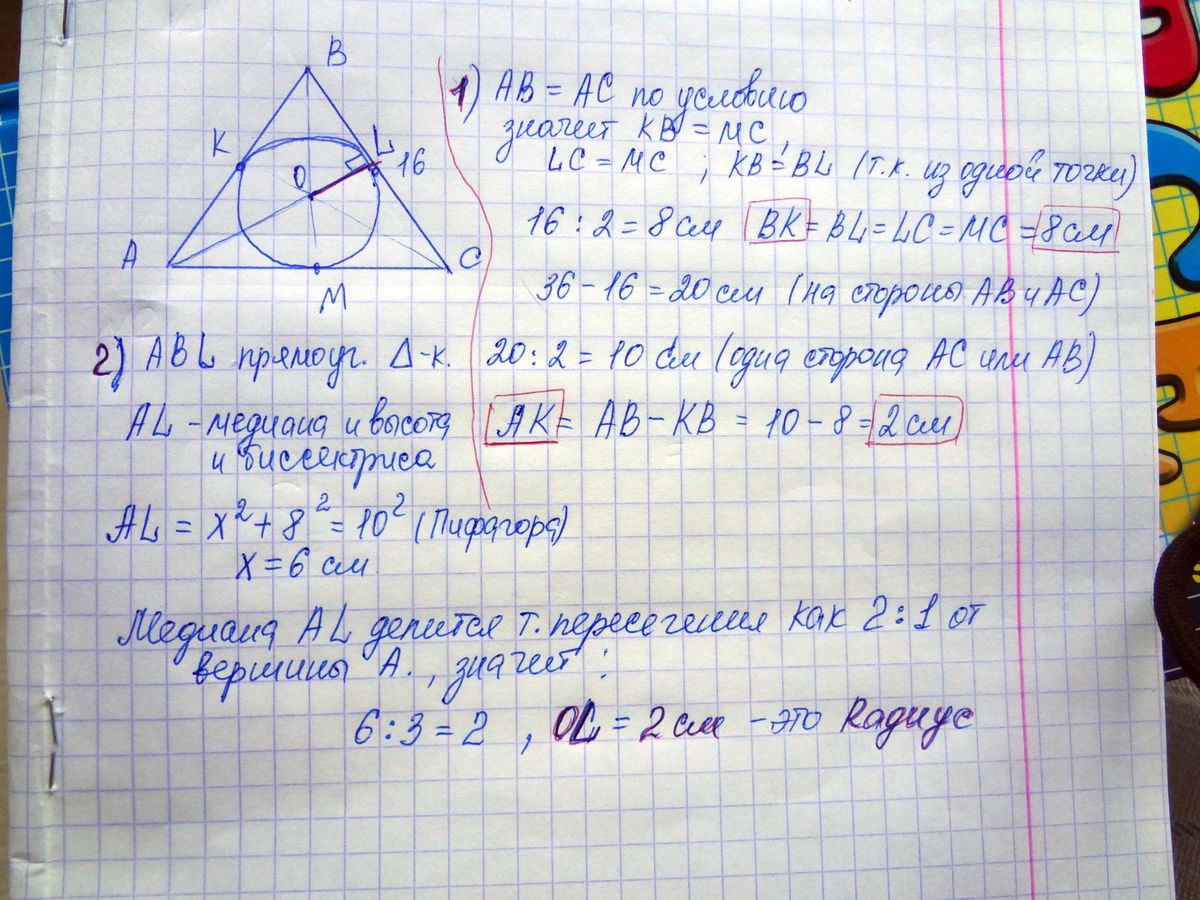 B
K
L
16
O
A
C
M
1) AB = AC по условию
значит KB = MC,
LC = MC ; KB = BL (т.к. из одной точки)
16 : 2 = 8 см BK = BL = LC = MC = 8 см
36 - 16 = 20 см (на стороны AB и AC)
20 : 2 = 10 см (одна сторона AC или AB)
AK = AB - KB = 10 - 8 = 2 см
2) ABL прямоуг. Δ-к.
AL - медиана и высота
и биссектриса
AL = x² + 8² = 10² (Пифагора)
x = 6 см
Медиана AL делится т. пересечения как 2 : 1 от
вершины A. , значит :
6 : 3 = 2 , OL = 2 см - это Радиус